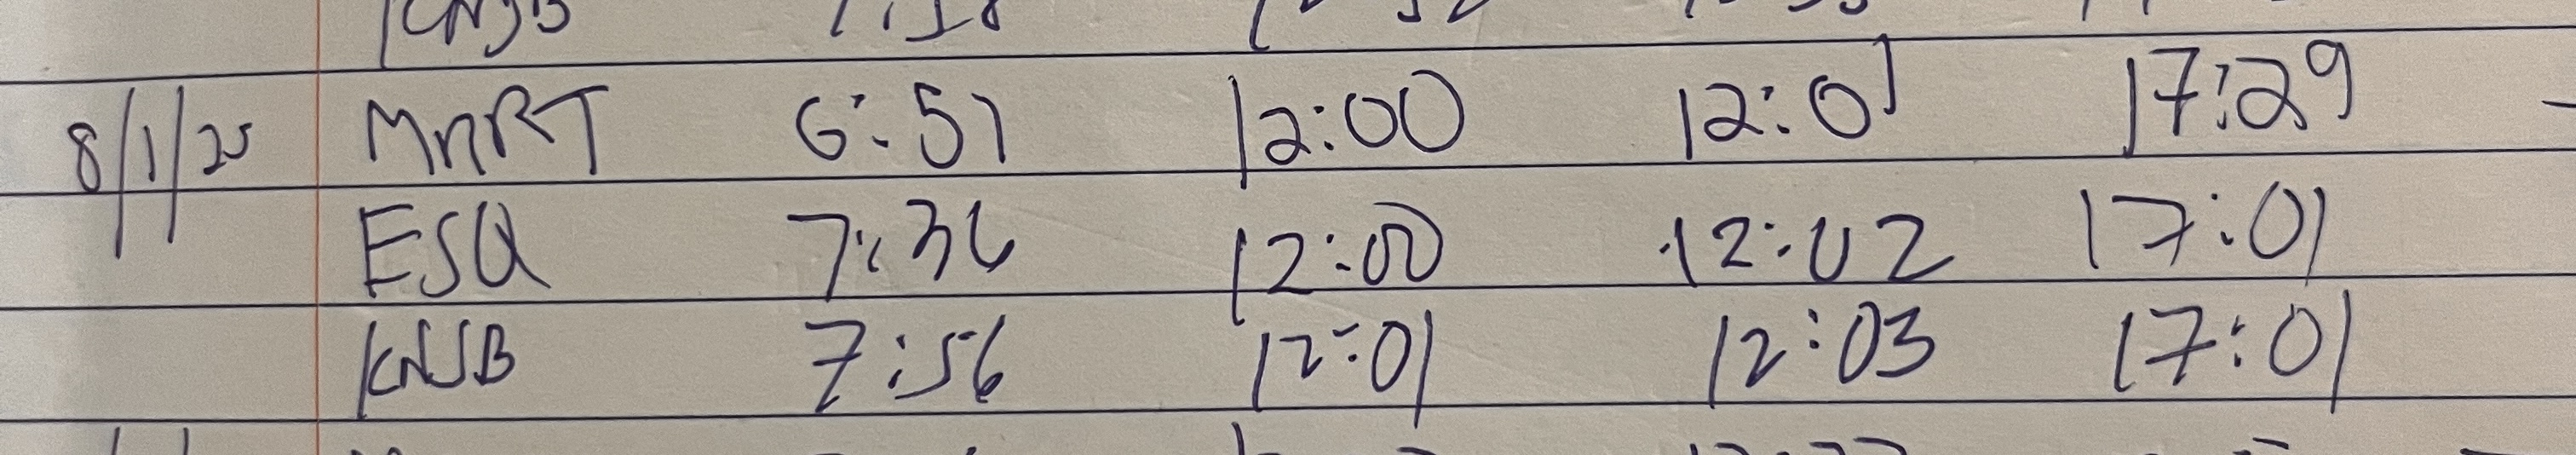 8/1/25 MnRT 6:51 12:00 12:01 17:29
ESQ 7:36 12:00 12:02 17:01
KNSB 7:56 12:01 12:03 17:01